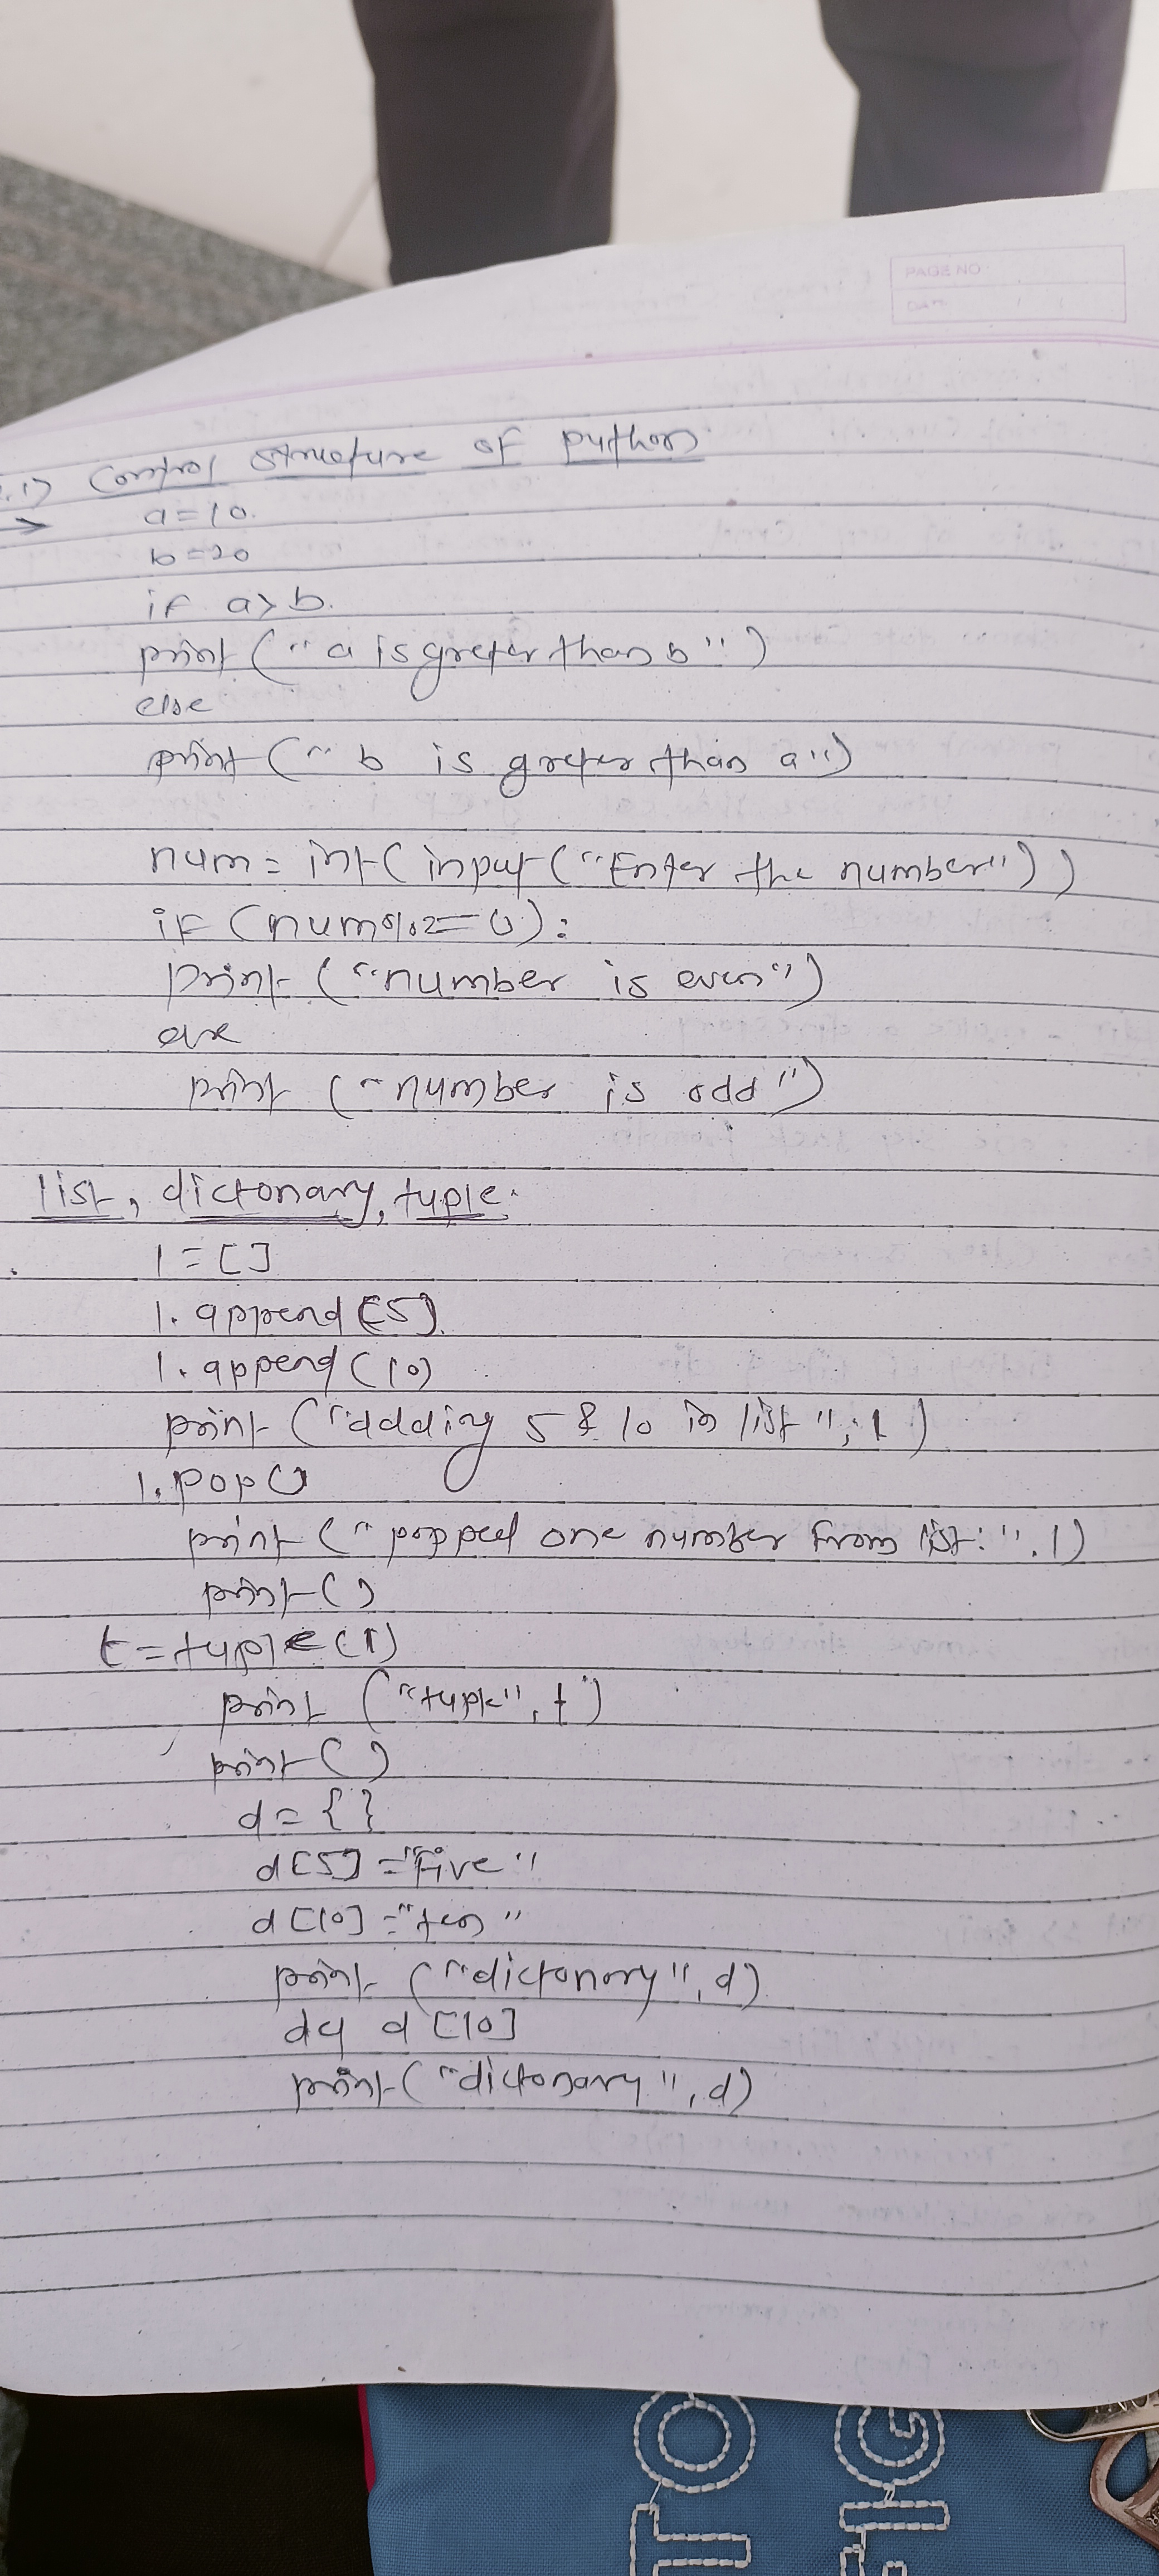 PAGE NO
DATE
.1) Control structure of python
→ a=10.
b=20
if a>b.
print ("a is greter than b")
else
print (" b is greter than a")
num = int (input ("Enter the number"))
if (num%2=0):
print ("number is even")
else
print ("number is odd")
list, dictonary, tuple.
l = []
l. append (5)
l. append (10)
print ("adding 5 & 10 in list", l)
l. pop()
print (" popped one number from list: ". l)
print ()
t = tuple (l)
print ("tuple", t)
print ()
d = { }
d[5] = "Five"
d[10] = "ten"
print ("dictonory", d)
d [10]
print ("dictonary", d)
TO
HG